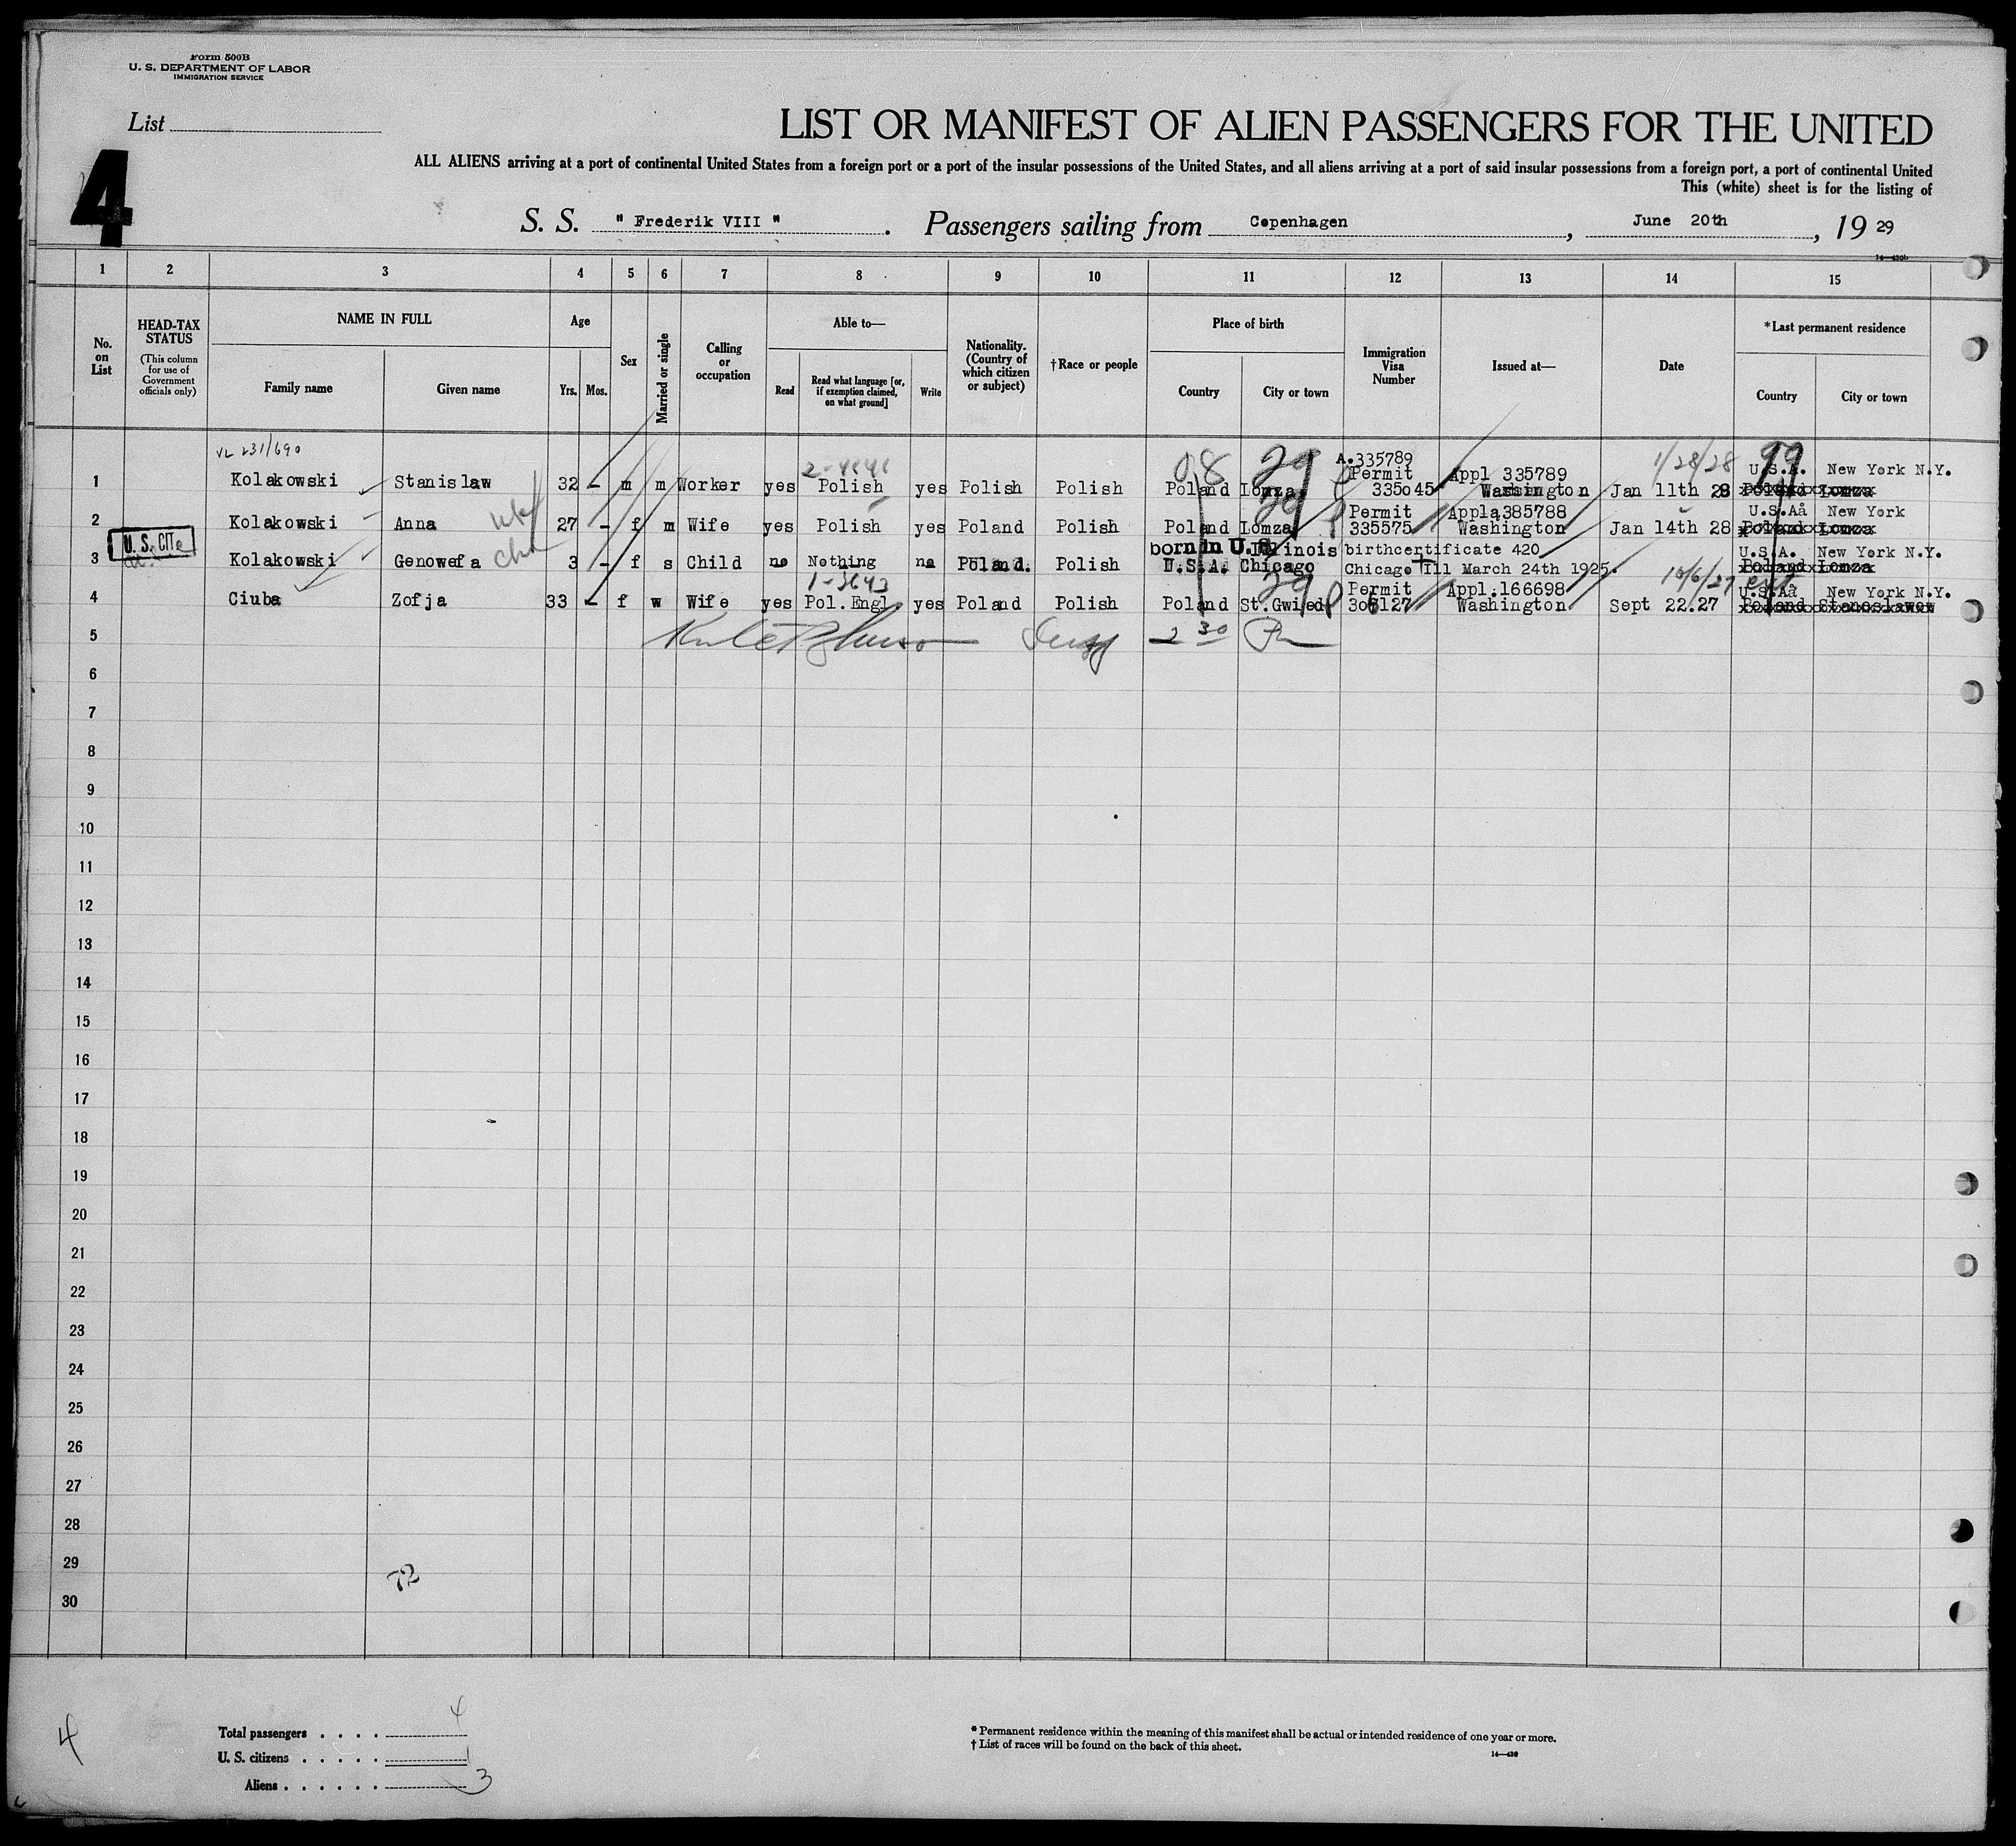 Form 500B
U. S. DEPARTMENT OF LABOR
IMMIGRATION SERVICE
List
4
LIST OR MANIFEST OF ALIEN PASSENGERS FOR THE UNITED
ALL ALIENS arriving at a port of continental United States from a foreign port or a port of the insular possessions of the United States, and all aliens arriving at a port of said insular possessions from a foreign port, a port of continental United
This (white) sheet is for the listing of
S. S. " Frederik VIII " . Passengers sailing from Copenhagen , June 20th , 19 29
14—430b
1 2 3 4 5 6 7 8 9 10 11 12 13 14 15
No. on List
HEAD-TAX STATUS
(This column for use of Government officials only)
NAME IN FULL
Family name Given name
Age
Yrs. Mos.
Sex
Married or single
Calling or occupation
Able to—
Read
Read what language [or, if exemption claimed, on what ground]
Write
Nationality. (Country of which citizen or subject)
†Race or people
Place of birth
Country City or town
Immigration Visa Number
Issued at—
Date
*Last permanent residence
Country City or town
VL 231/690
08 29 A.335789 1/28/28 99
Permit Appl 335789 U.S.A. New York N.Y.
1 Kolakowski Stanislaw 32 - m m Worker yes Polish yes Polish Polish Poland Lomza 335045 Washington Jan 11th 28 Poland Lomza
Permit Appla385788 U.S.Aå New York
2 Kolakowski Anna 27 - f m Wife yes Polish yes Poland Polish Poland Lomza 335575 Washington Jan 14th 28 Poland Lomza
U. S. CIT
born in U.S. Illinois birthcertificate 420 U.S.A. New York N.Y.
3 Kolakowski Genowefa 3 - f s Child no Nothing no Poland. Polish U.S.A. Chicago Chicago Ill March 24th 1925. Poland Lomza
1-3643 29 Permit Appl.166698 10/6/27 U.S.Aå New York N.Y.
4 Ciuba Zofja 33 - f w Wife yes Pol.Engl yes Poland Polish Poland St.Gwized 306127 Washington Sept 22.27 Poland Stanoslawow
5 2 30
6
7
8
9
10
11
12
13
14
15
16
17
18
19
20
21
22
23
24
25
26
27
28
29 72
30
4
Total passengers . . . . 4
U. S. citizens . . . . . 1
Aliens . . . . . . 3
* Permanent residence within the meaning of this manifest shall be actual or intended residence of one year or more.
† List of races will be found on the back of this sheet.
14—430